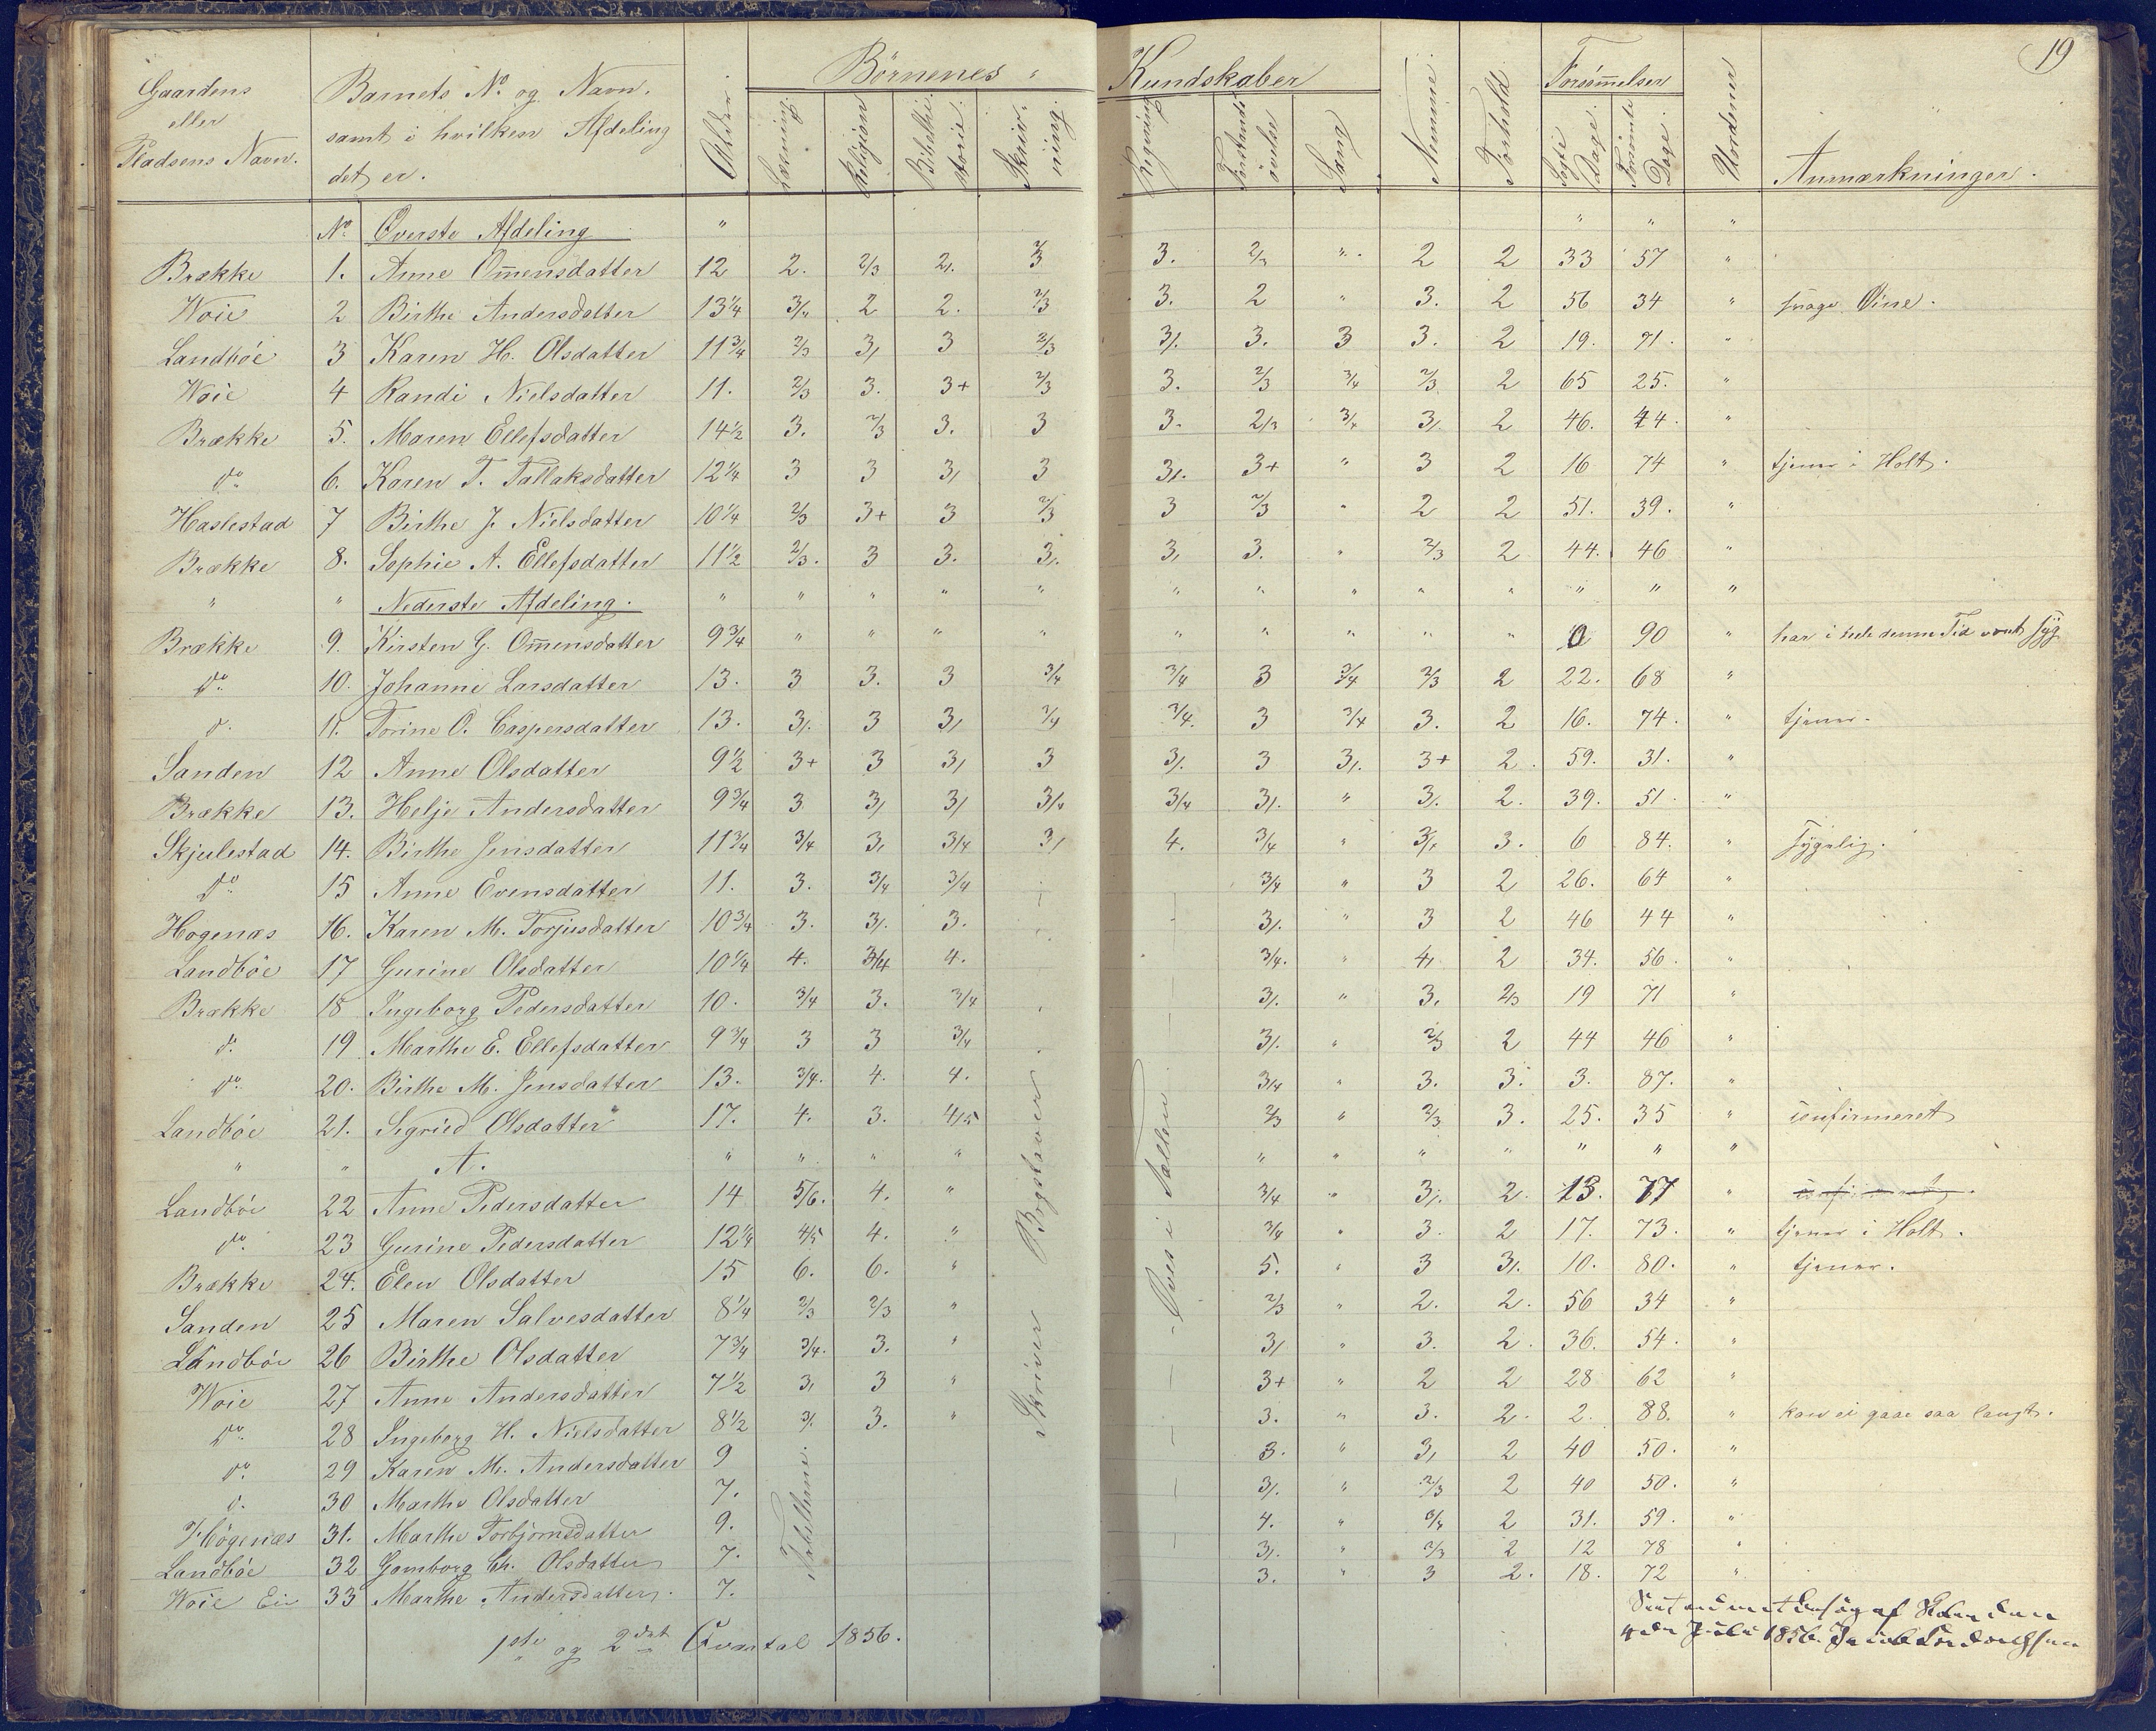 19
Gaardens eller Pladsens Navn. | Barnets No. og Navn. samt i hvilken Afdeling det er. | Alder. | Börnenes Kundskaber: Læsning. | Religion | Bibelhistorie. | Skrivning. | Regning | Forstandsövelser | Sang | Nemme. | Forhold | Forsömmelser: Sögte Dage. | Forsömte Dage. | Uordener | Anmærkninger.
No. Överste Afdeling " " " "
Brække 1. Anne Om̄ensdatter 12 2. 2/3 2/. 2/3 3. 2/3 " 2 2 33 57 "
Woie 2 Birthe Andersdatter 13¼ 3/4 2 2. 2/3 3. 2 " 3. 2 56 34 " svage Øine.
Landböe 3 Karen H. Olsdatter 11¾ 2/3 3/ 3 2/3 3/. 3. 3 3. 2 19. 71. "
Woie 4 Randi Nielsdatter 11. 2/3 3. 3+ 2/3 3. 2/3 3/4 2/3 2 65 25. "
Brække 5. Maren Ellefsdatter 14½ 3. 2/3 3. 3 3. 2/3 3/4 3/. 2 46. 44. "
do. 6. Karen T. Tallaksdatter 12¼ 3 3 3/ 3 3/. 3+ " 3 2 16 74 " tjener i Holt.
Haslestad 7 Birthe J. Nielsdatter 10¼ 2/3 3+ 3 2/3 3 2/3 " 2 2 51. 39. "
Brække 8. Sophie A. Ellefsdatter 11½ 2/3. 3 3. 3/. 3/ 3. " 2/3 2 44. 46 "
" " Nederste Afdeling. " " " " " " " " " " " " "
Brække 9. Kirsten G. Om̄ensdatter 9¾ " " " " " " " " " 0 90 " har i hele denne Tid været syg
do. 10. Johanne Larsdatter 13. 3 3. 3 3/4 3/4 3 3/4 2/3 2 22. 68 "
d. 11. Torine O. Caspersdatter 13. 3/. 3 3/ 3/4 3/4. 3 3/4 3. 2 16. 74. " tjener.
Sanden 12 Anne Olsdatter 9½ 3+ 3 3/ 3 3/. 3 3/. 3+ 2. 59. 31. "
Brække 13. Helje Andersdatter 9¾ 3 3/ 3/ 3/4 3/4 3/. " 3/. 2. 39. 51. "
Skjulestad 14. Birthe Jensdatter 11¾ 3/4 3/ 3/4 3/ 4. 3/4 " 3/4 3. 6 84. " sygelig.
do. 15 Anne Evensdatter 11. 3. 3/4 3/4 3/4 " 3 2 26. 64 "
Hogenæs 16. Karen M. Torjusdatter 10¾ 3. 3/. 3. 3/. " 3 2 46 44 "
Landböe 17 Gurine Olsdatter 10¼ 4. 3/4 4. 3/4. " 4/ 2 34. 56. "
Brække 18 Ingeborg Pedersdatter 10. 3/4 3. 3/4 3/. " 3. 2/3 19 71 "
d. 19 Marthe E. Ellefsdatter 9¾ 3 3 3/4 3/. " 2/3 2 44 46 "
do. 20. Birthe M. Jensdatter 13. 3/4. 4. 4. 3/4 " 3. 3. 3. 87. "
Landböe 21. Sigried Olsdatter 17. 4. 3. 4/5 2/3 " 2/3 3. 25. 35 " confirmeret
" " A. " " " " " " " " " " "
Landböe 22 Anne Pedersdatter 14 5/6. 4. " 3/4 " 3/. 2. 13. 77 "
do. 23 Gurine Pedersdatter 12¼ 4/5 4. " 3/4 " 3. 2 17. 73. " tjener i Holt.
Brække 24. Elen Olsdatter 15 6. 6. " 5. " 3 3/. 10. 80. " tjener.
Sanden 25 Maren Salvesdatter 8¼ 2/3 2/3 " 2/3 " 2. 2. 56 34 "
Landböe 26 Birthe Olsdatter 7¾ 3/4. 3. " 3/ " 3. 2. 36. 54. "
Woie 27 Anne Andersdatter 7½ 3/ 3 " 3+ " 2 2 28 62 "
do. 28 Ingeborg H. Nielsdatter 8½ 3/. 3. " 3. " 3. 2. 2. 88. " kan ei gaae saa langt.
do. 29 Karen M. Andersdatter 9 3. " 3/ 2 40 50. "
d. 30 Marthe Olsdatter 7. 3/. " 2/3 2 40 50. "
Högenæs 31. Marthe Torbjornsdatter 9. 4. " 3/4 2 31. 59. "
Landböe 32 Gomborg Ch. Olsdatter 7. 3/. " 2/3 2 12 78 "
Woie Ei 33 Marthe Andersdatter. 7. 3. " 3 2. 18. 72 "
Skriver Bogstaver
Öves i Tallene
1ste og 2det Qvartal 1856.
Skolen den
4de Juli 1856. Jacob